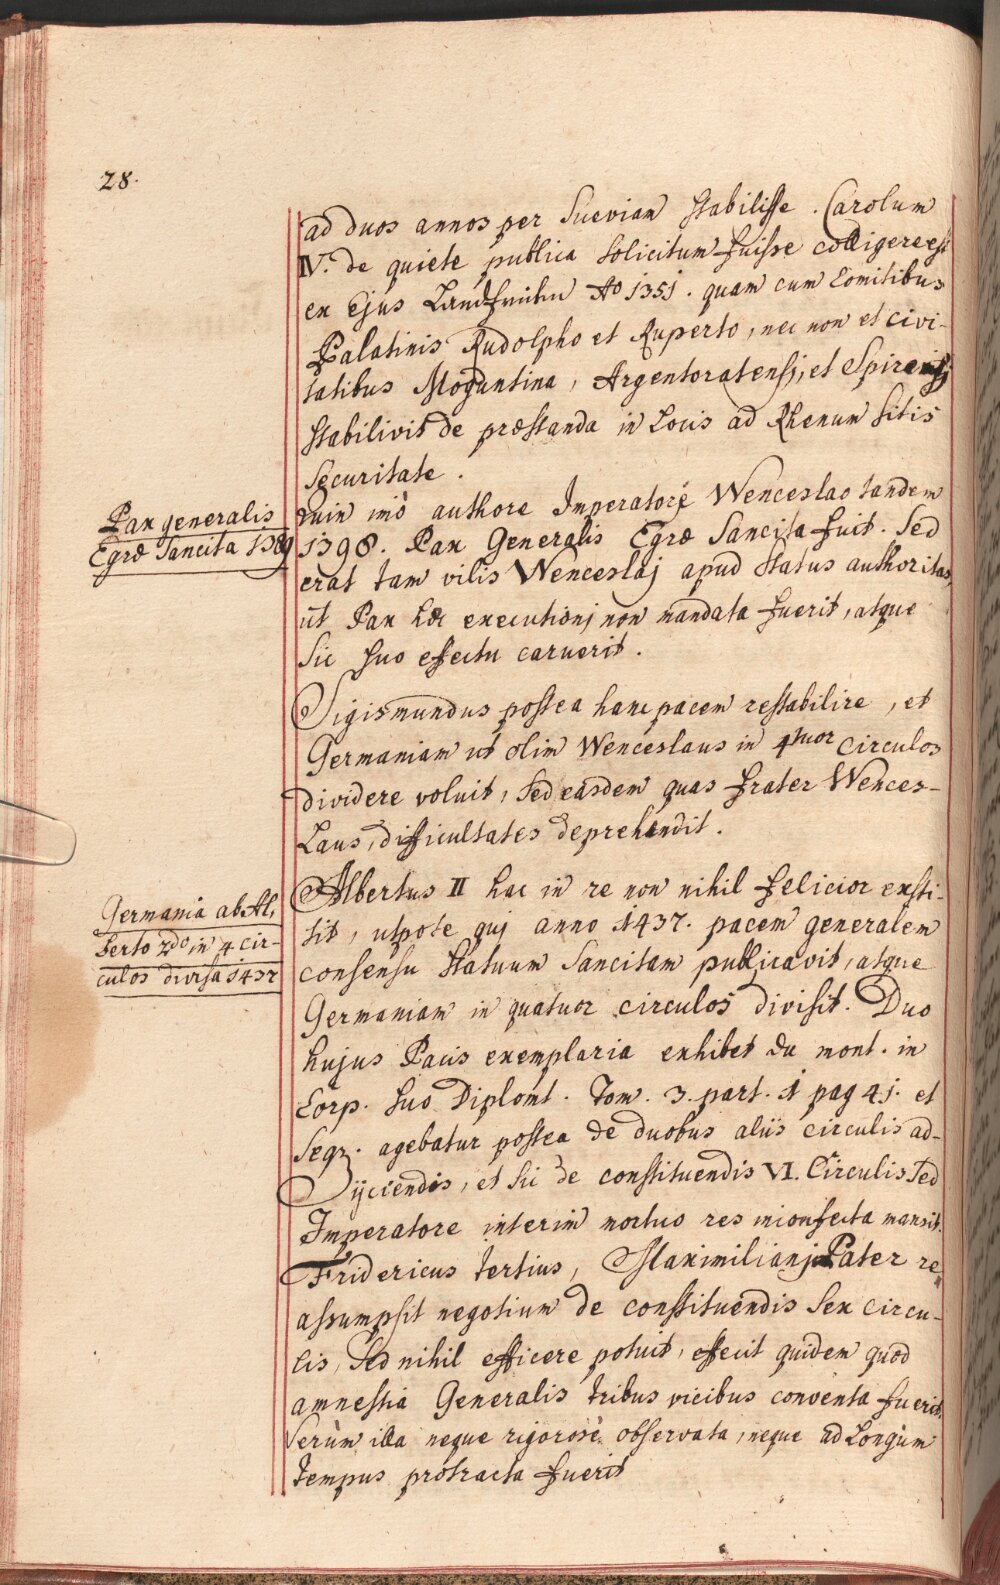 28.
ad duos annos per Sueviam stabilisse. Carolum
IV. de quiete publica solicitum fuisse colligere est
ex Ejus Landfriden Ao 1351. quam cum Comitibus
Palatinis Rudolpho et Ruperto, nec non et civi-
tatibus Moguntina, Argentoratensj, et Spirensj
stabilivit de præstanda in Locis ad Rhenum sitis
securitate.
Pax generalis
Egræ Sancita 1389
quin imò authore Imperatore Wenceslao tandem
1398. Pax Generalis Egræ Sancita fuit. Sed
erat tam vilis Wenceslaj apud Status authoritas,
ut Pax hæc executionj non mandata fuerit, atque
sic suo effectu caruerit.
Sigismundus postea hanc pacem restabilire, et
Germaniam ut olim Wenceslaus in 4tuor circulos
dividere voluit, sed easdem quas frater Wences-
Laus, difficultates deprehendit.
Germania ab Al,
berto 2do in 4 cir-
culos divisa 1437
Albertus II hac in re non nihil felicior exsti-
tit, utpote quj anno 1437. pacem generalem
consensu statuum Sancitam publicavit, atque
Germaniam in quatuor circulos divisit. Duo
hujus Pacis exemplaria exhibet du mont. in
Corp. suo Diplomt. Tom. 3. part. 1 pag 41. et
seqq. agebatur postea de duobus aliis circulis ad-
ijciendis, et sic de constituendis VI. Circulis Sed
Imperatore interim mortuo res inconfecta mansit.
Fridericus tertius, Maximilianj Pater re,,
assumpsit negotium de constituendis sex circu-
lis, sed nihil efficere potuit, effecit quidem quod
amnestia Generalis tribus vicibus conventa fuerit,
verùm illa neque rigorosè observata, neque ad Longùm
tempus protracta fuerit